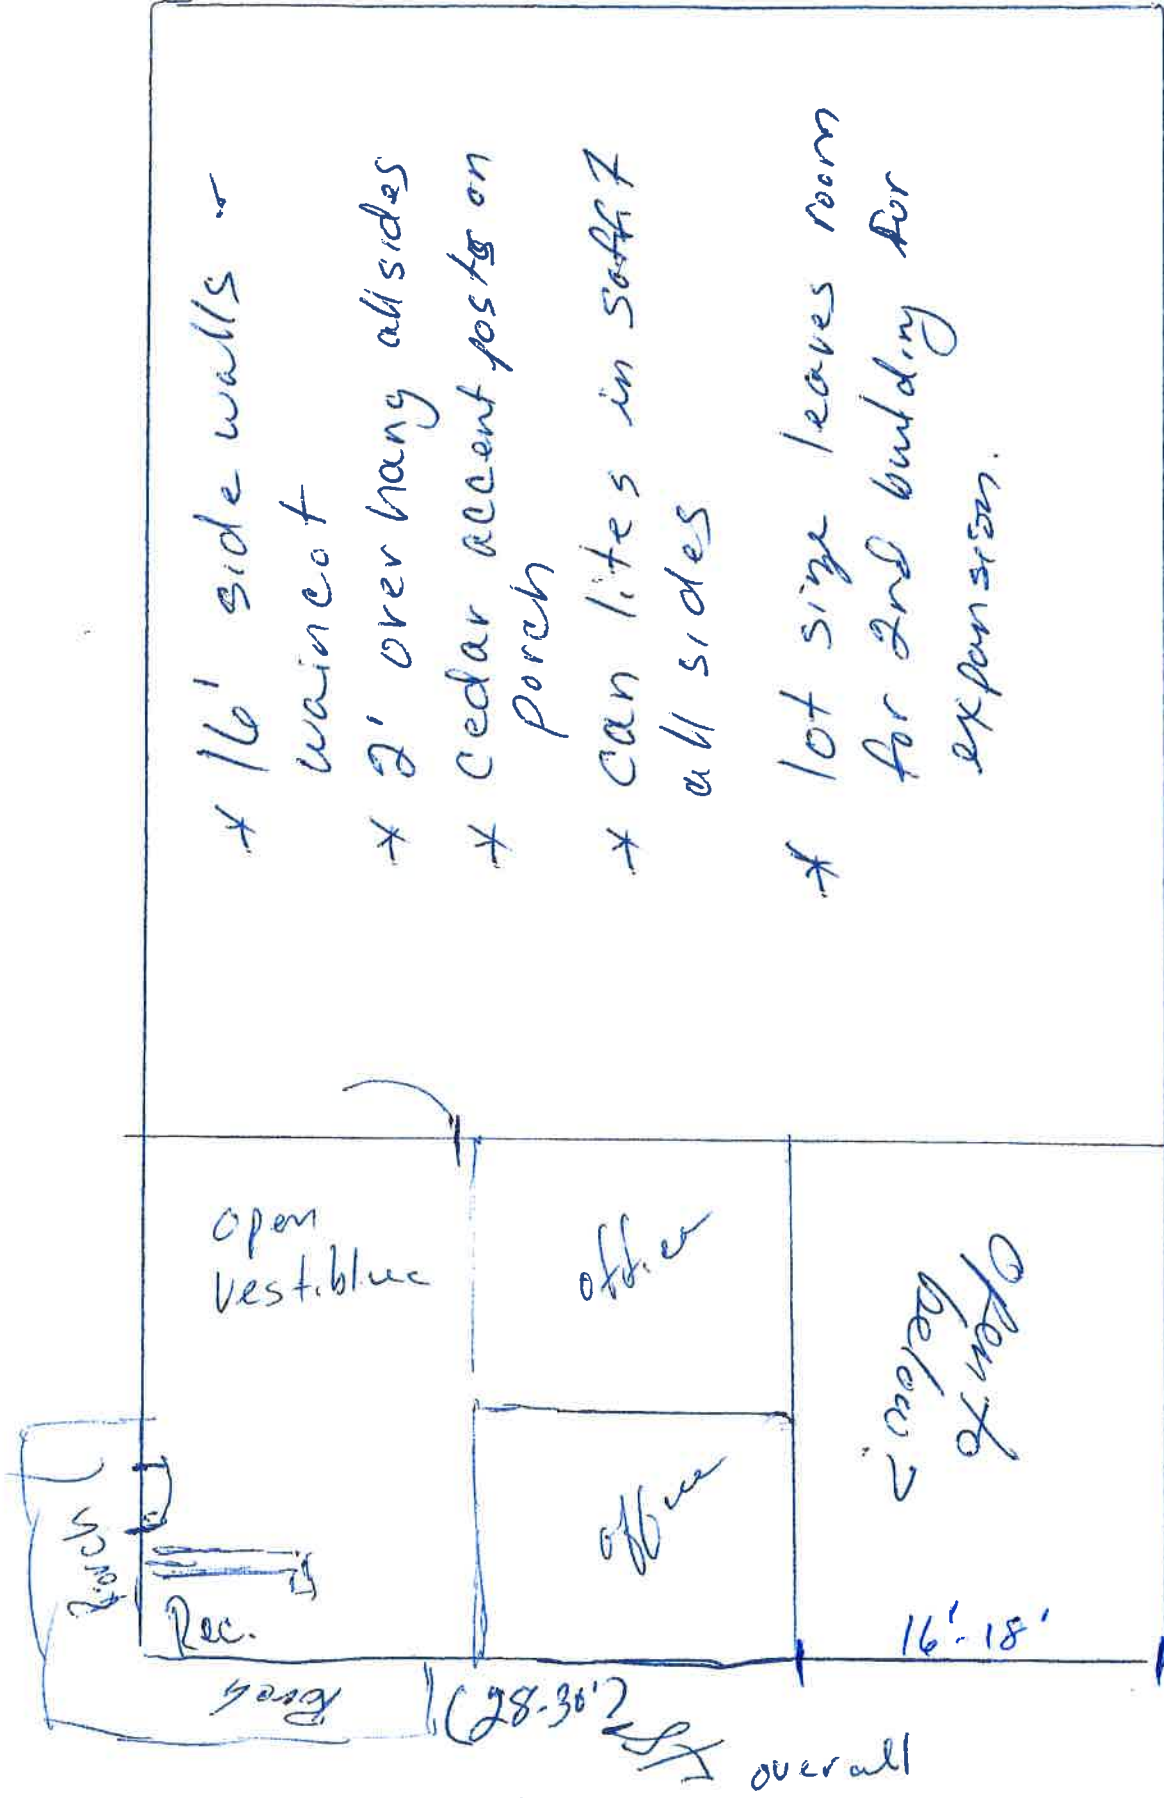 * 16' side walls
waincot
* 2' over hang all sides
* cedar accent posts on
porch
* can lites in soffit
all sides
* lot size leaves room
for 2nd building for
expansion.
open
vestiblue
office
office
Open to
below?
Porch
Rec.
Porch
(28-30')
overall
16'-18'